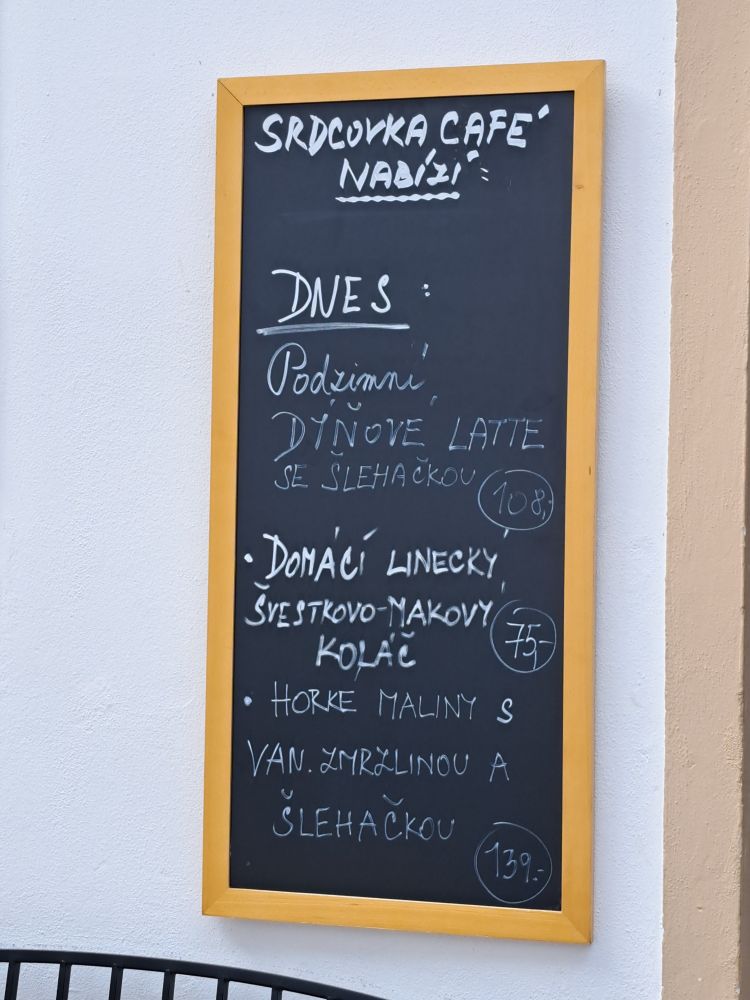 SRDCOVKA CAFÉ
NABÍZÍ:
DNES:
Podzimní
DÝŇOVÉ LATTE
SE ŠLEHAČKOU 108,-
• DOMÁCÍ LINECKÝ
ŠVESTKOVO-MAKOVÝ 75,-
KOLÁČ
• HORKÉ MALINY S
VAN. ZMRZLINOU A
ŠLEHAČKOU
139.-